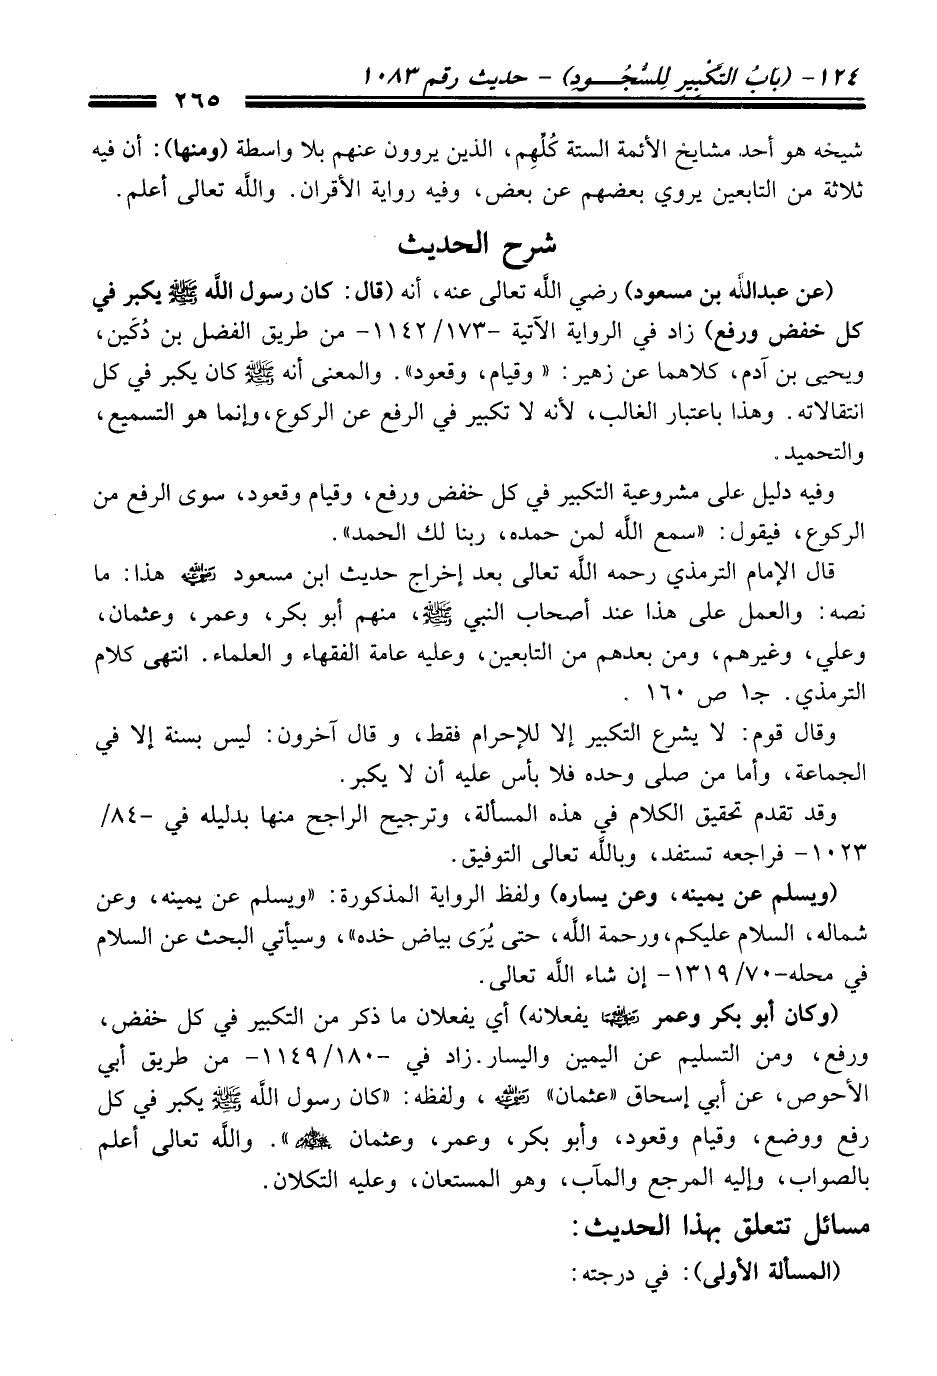 ١٢٤- (بَابُ التَّكْبِيرِ لِلسُّجُـــودِ) - حديث رقم ١٠٨٣
٢٦٥
شيخه هو أحد مشايخ الأئمة الستة كُلِّهِم، الذين يروون عنهم بلا واسطة (ومنها): أن فيه
ثلاثة من التابعين يروي بعضهم عن بعض، وفيه رواية الأقران. والله تعالى أعلم.
شرح الحديث
(عن عبدالله بن مسعود) رضي الله تعالى عنه، أنه (قال: كان رسول الله ﷺ يكبر في
كل خفض ورفع) زاد في الرواية الآتية -١١٤٢/١٧٣- من طريق الفضل بن دُكَين،
ويحيى بن آدم، كلاهما عن زهير: « وقيام، وقعود». والمعنى أنه ﷺ كان يكبر في كل
انتقالاته. وهذا باعتبار الغالب، لأنه لا تكبير في الرفع عن الركوع، وإنما هو التسميع،
والتحميد.
وفيه دليل على مشروعية التكبير في كل خفض ورفع، وقيام وقعود، سوى الرفع من
الركوع، فيقول: «سمع الله لمن حمده، ربنا لك الحمد».
قال الإمام الترمذي رحمه الله تعالى بعد إخراج حديث ابن مسعود رضي الله عنه هذا: ما
نصه: والعمل على هذا عند أصحاب النبي ﷺ، منهم أبو بكر، وعمر، وعثمان،
وعلي، وغيرهم، ومن بعدهم من التابعين، وعليه عامة الفقهاء و العلماء. انتهى كلام
الترمذي. جـ١ ص ١٦٠ .
وقال قوم: لا يشرع التكبير إلا للإحرام فقط، و قال آخرون: ليس بسنة إلا في
الجماعة، وأما من صلى وحده فلا بأس عليه أن لا يكبر.
وقد تقدم تحقيق الكلام في هذه المسألة، وترجيح الراجح منها بدليله في -٨٤/
١٠٢٣- فراجعه تستفد، وبالله تعالى التوفيق.
(ويسلم عن يمينه، وعن يساره) ولفظ الرواية المذكورة: «ويسلم عن يمينه، وعن
شماله، السلام عليكم، ورحمة الله، حتى يُرَى بياض خده»، وسيأتي البحث عن السلام
في محله-١٣١٩/٧٠- إن شاء الله تعالى.
(وكان أبو بكر وعمر رضي الله عنهما يفعلانه) أي يفعلان ما ذكر من التكبير في كل خفض،
ورفع، ومن التسليم عن اليمين واليسار. زاد في -١١٤٩/١٨٠- من طريق أبي
الأحوص، عن أبي إسحاق «عثمان» رضي الله عنه ، ولفظه: «كان رسول الله ﷺ يكبر في كل
رفع ووضع، وقيام وقعود، وأبو بكر، وعمر، وعثمان رضي الله عنهم ». والله تعالى أعلم
بالصواب، وإليه المرجع والمآب، وهو المستعان، وعليه التكلان.
مسائل تتعلق بهذا الحديث:
(المسألة الأولى): في درجته: